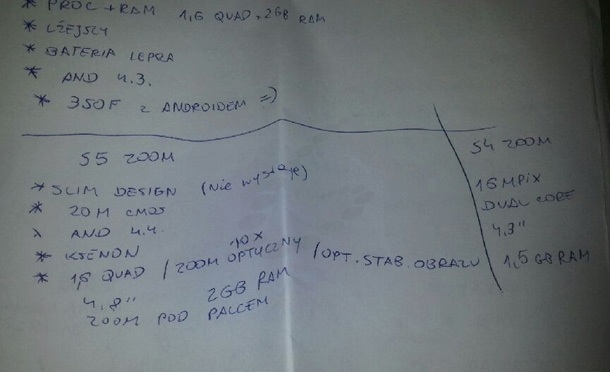 * PROC + RAM 1,6 QUAD, 2GB RAM
* LŻEJSZY
* BATERIA LEPSZA
* AND 4.3.
* 350F z ANDROIDEM =)
S5 ZOOM
* SLIM DESIGN (Nie wystaje)
* 20M CMOS
* AND 4.4.
* KSENON
* 1,8 QUAD / ZOOM 10x OPTYCZNY / OPT. STAB. OBRAZU
4,8" 2GB RAM
ZOOM POD PALCEM
S4 ZOOM
16 MPIX
DUAL CORE
4,3"
1,5 GB RAM